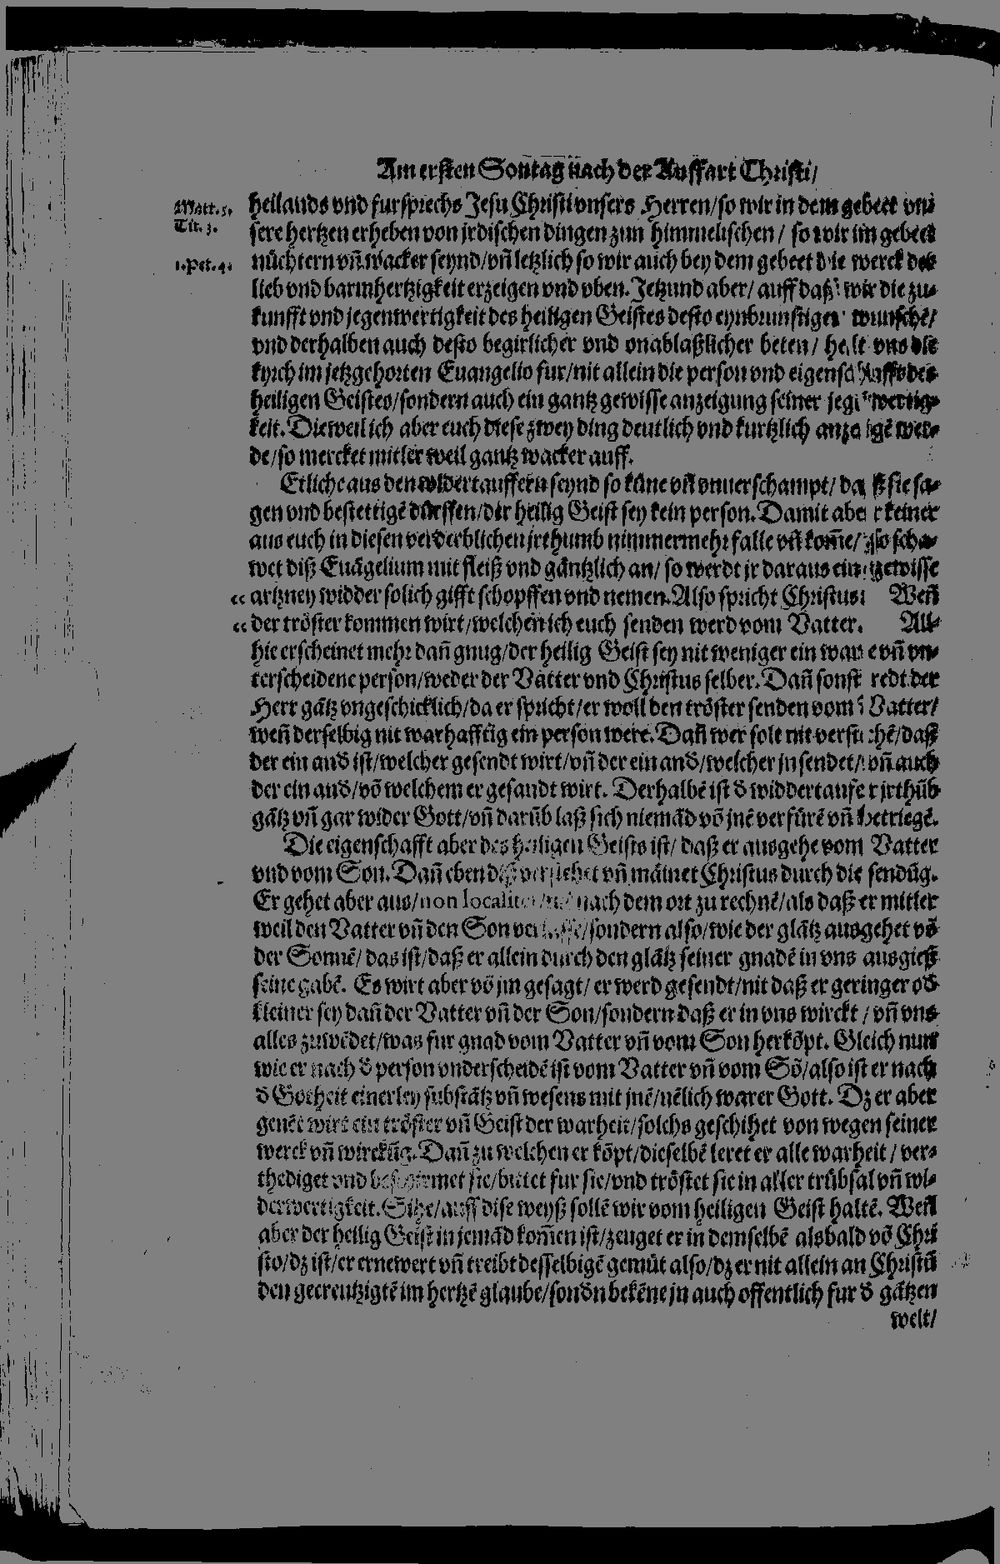 Am ersten Sontag nach der Auffart Christi/
Matt. 5.
Tit. 3.
1. Pet. 4.
heilands vnd fursprechs Jesu Christi vnsers Herren/so wir in dem gebeet vnsere
sere hertzen erheben von jrdischen dingen zun himmelischen / so wir im gebeet
nüchtern vñ wacker seynd/vñ letzlich so wir auch bey dem gebeet die werck der
lieb vnd barmhertzigkeit erzeigen vnd vben. Jetzund aber/ auff daß wir die zu-
kunfft vnd jegenwertigkeit des heiligen Geistes desto eynbrunstiger wunschē/
vnd derhalben auch desto begirlicher vnd onablaßlicher beten/ helt vns die
kyrch im jetzgehorten Euangelio fur/nit allein die person vnd eigenschafft des
heiligen Geistes/sondern auch ein gantz gewisse anzeigung seiner jegenwertig-
keit. Dieweil ich aber euch diese zwey ding deutlich vnd kurtzlich anzeigē wer-
de/so mercket mitler weil gantz wacker auff.
Etliche aus den widertauffern seynd so küne vñ vnuerschampt/ daß sie sa-
gen vnd bestettigē dürffen/der heilig Geist sey kein person. Damit aber keiner
aus euch in diesen verderblichen jrthumb nimmermehr falle vñ kom̄e/ so scha-
wet diß Euāgelium mit fleiß vnd gäntzlich an/ so werdt jr daraus ein gewisse
“ artzney widder solich gifft schopffen vnd nemen. Also spricht Christus: Weñ
“ der tröster kommen wirt/welchen ich euch senden werd vom Vatter. All-
hie erscheinet mehr dañ gnug/der heilig Geist sey nit weniger ein ware vñ vn-
terscheidene person/weder der Vatter vnd Christus selber. Dañ sonst redt der
Herr gātz vngeschicklich/da er spricht/er woll den tröster senden vom Vatter/
weñ derselbig nit warhafftig ein person were. Dañ wer solt nit verstehē/daß
der ein and̄ ist/welcher gesendt wirt/vñ der ein and̄/welcher jn sendet/ vñ auch
der ein and̄/vō welchem er gesandt wirt. Derhalbē ist d̄ widdertaufer jrthūb
gātz vñ gar wider Gott/vñ darūb laß sich niemād vō jnē verfürē vñ betriegē.
Die eigenschafft aber des heiligen Geists ist/ daß er ausgehe vom Vatter
vnd vom Son. Dañ eben diß verstehet vñ mäinet Christus durch die sendūg.
Er gehet aber aus/non localiter/nit nach dem ort zu rechnē/als daß er mitler
weil den Vatter vñ den Son verlasse/sondern also/wie der glātz ausgehet vō
der Sonnē/ das ist/daß er allein durch den glātz seiner gnadē in vns ausgieß
seine gabē. Es wirt aber vō jm gesagt/ er werd gesendt/nit daß er geringer od̄
kleiner sey dañ der Vatter vñ der Son/sondern daß er in vns wirckt / vñ vns
alles zuwēdet/was fur gnad vom Vatter vñ vom Son herköpt. Gleich nun
wie er nach d̄ person vnderscheidē ist vom Vatter vñ vom Sō/also ist er nach
d̄ Gotheit einerley substātz vñ wesens mit jnē/nēlich warer Gott. Dz er aber
genēt wirt ein tröster vñ Geist der warheit/solchs geschihet von wegen seiner
werck vñ wirckūg. Dañ zu welchen er köpt/dieselbē leret er alle warheit / ver-
thediget vnd beschirmet sie/bittet fur sie/vnd tröstet sie in aller trübsal vñ wi-
derwertigkeit. Sihe/auff dise weyß sollē wir vom heiligen Geist haltē. Weñ
aber der heilig Geist in jemād kom̄en ist/zeuget er in demselbē alsbald vō Chri
sto/dz ist/er ernewert vñ treibt desselbigē gemüt also/dz er nit allein an Christū
den gecreutzigtē im hertzē glaube/sond̄n bekēne jn auch offentlich fur d̄ gātzen
welt/